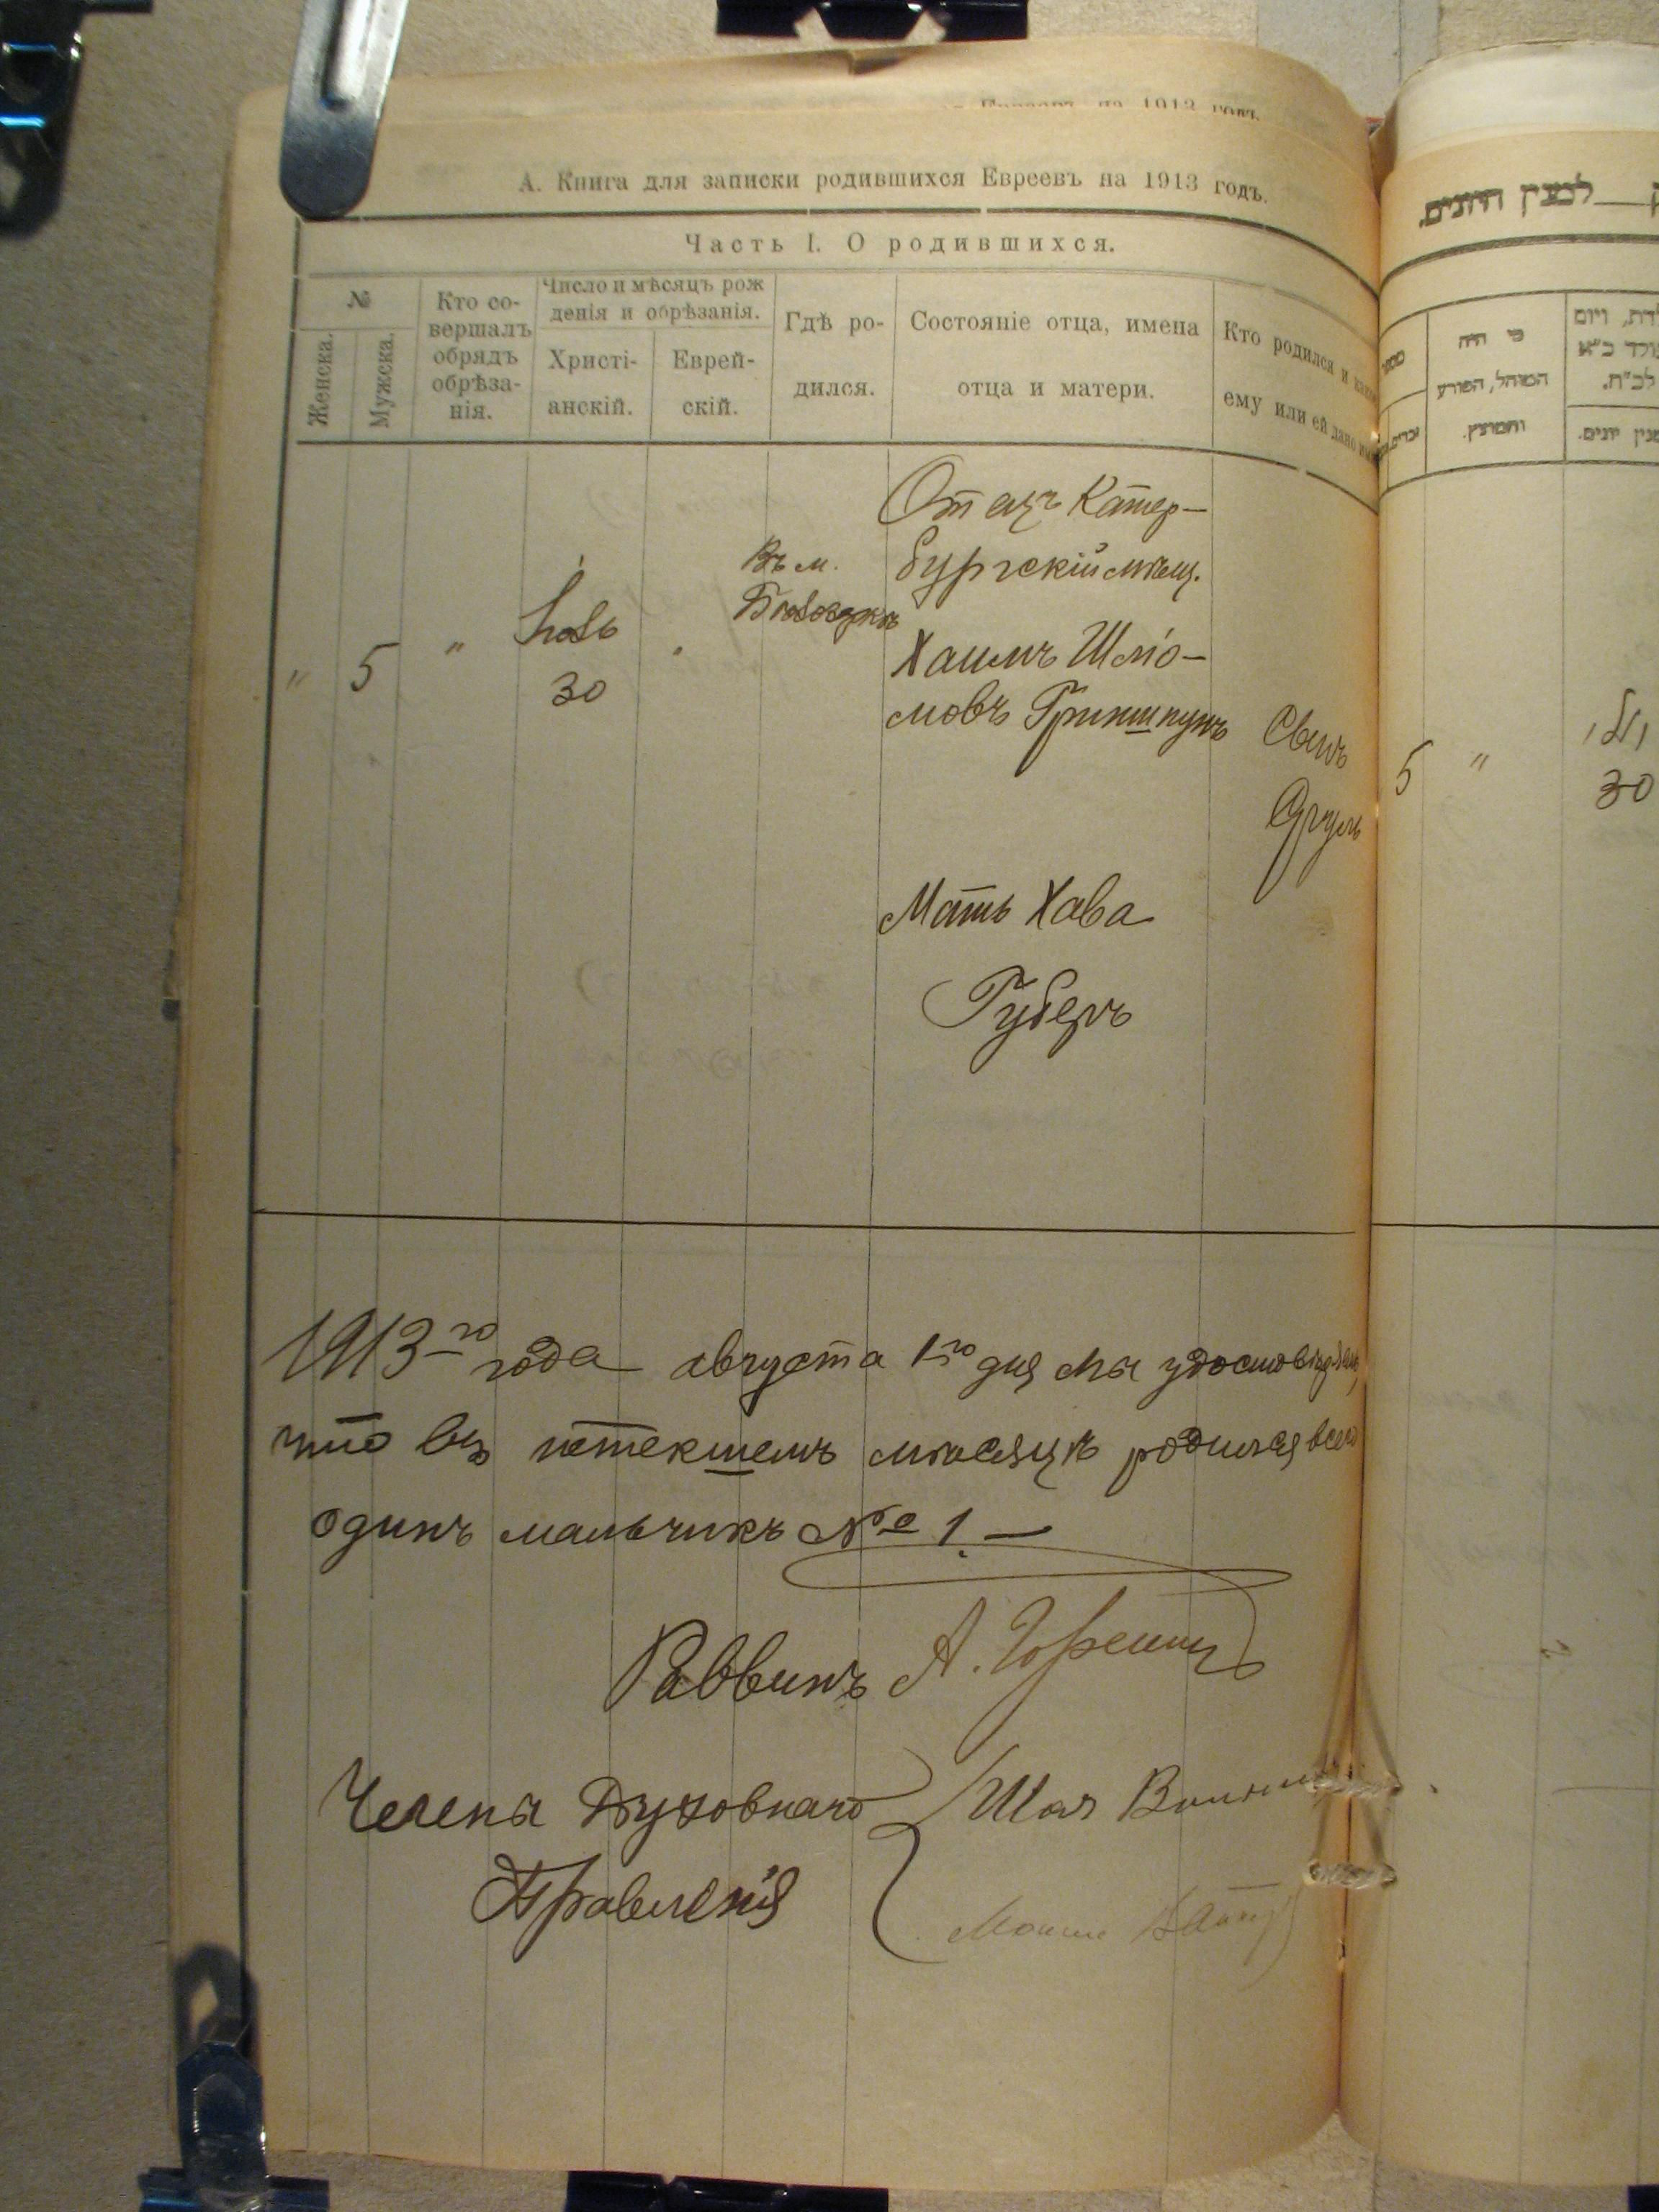 на 1913 годъ.
А. Книга для записки родившихся Евреевъ на 1913 годъ.
Часть I. О родившихся.
№
Женска.
Мужска.
Кто со-
вершалъ
обрядъ
обрѣза-
нія.
Число и мѣсяцъ рож
денія и обрѣзанія.
Христі-
анскій.
Еврей-
скій.
Гдѣ ро-
дился.
Состояніе отца, имена
отца и матери.
Кто родился и какое
ему или ей дано имя
" 5 "
Іюль
30
Въ м.
Отецъ Катер-
бургскій мѣщ.
Хаимъ Шліо-
мовъ Гриншпунъ
Сынъ
Мать Хава
Губеръ
1913-го года августа 1-го дня мы удостовѣряемъ,
что въ истекшемъ мѣсяцѣ родился всего
одинъ мальчикъ № 1. —
Раввинъ А.
Члены Духовнаго
Правленія
Шая
לבעין היונים.
מי היה
המוהל, הפורע
והמוצץ.
5 "
יולי
30